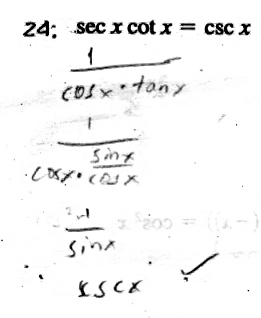 24: sec x cot x = csc x
1
cosx · tanx
1
sinx
cosx · cosx
1
sinx
cscx ✓